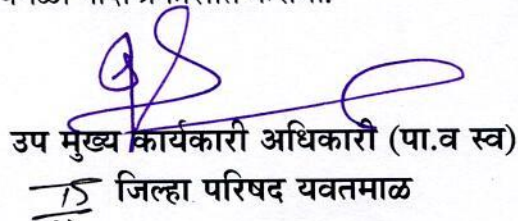 उप मुख्य कार्यकारी अधिकारी (पा.व स्व)
जिल्हा परिषद यवतमाळ